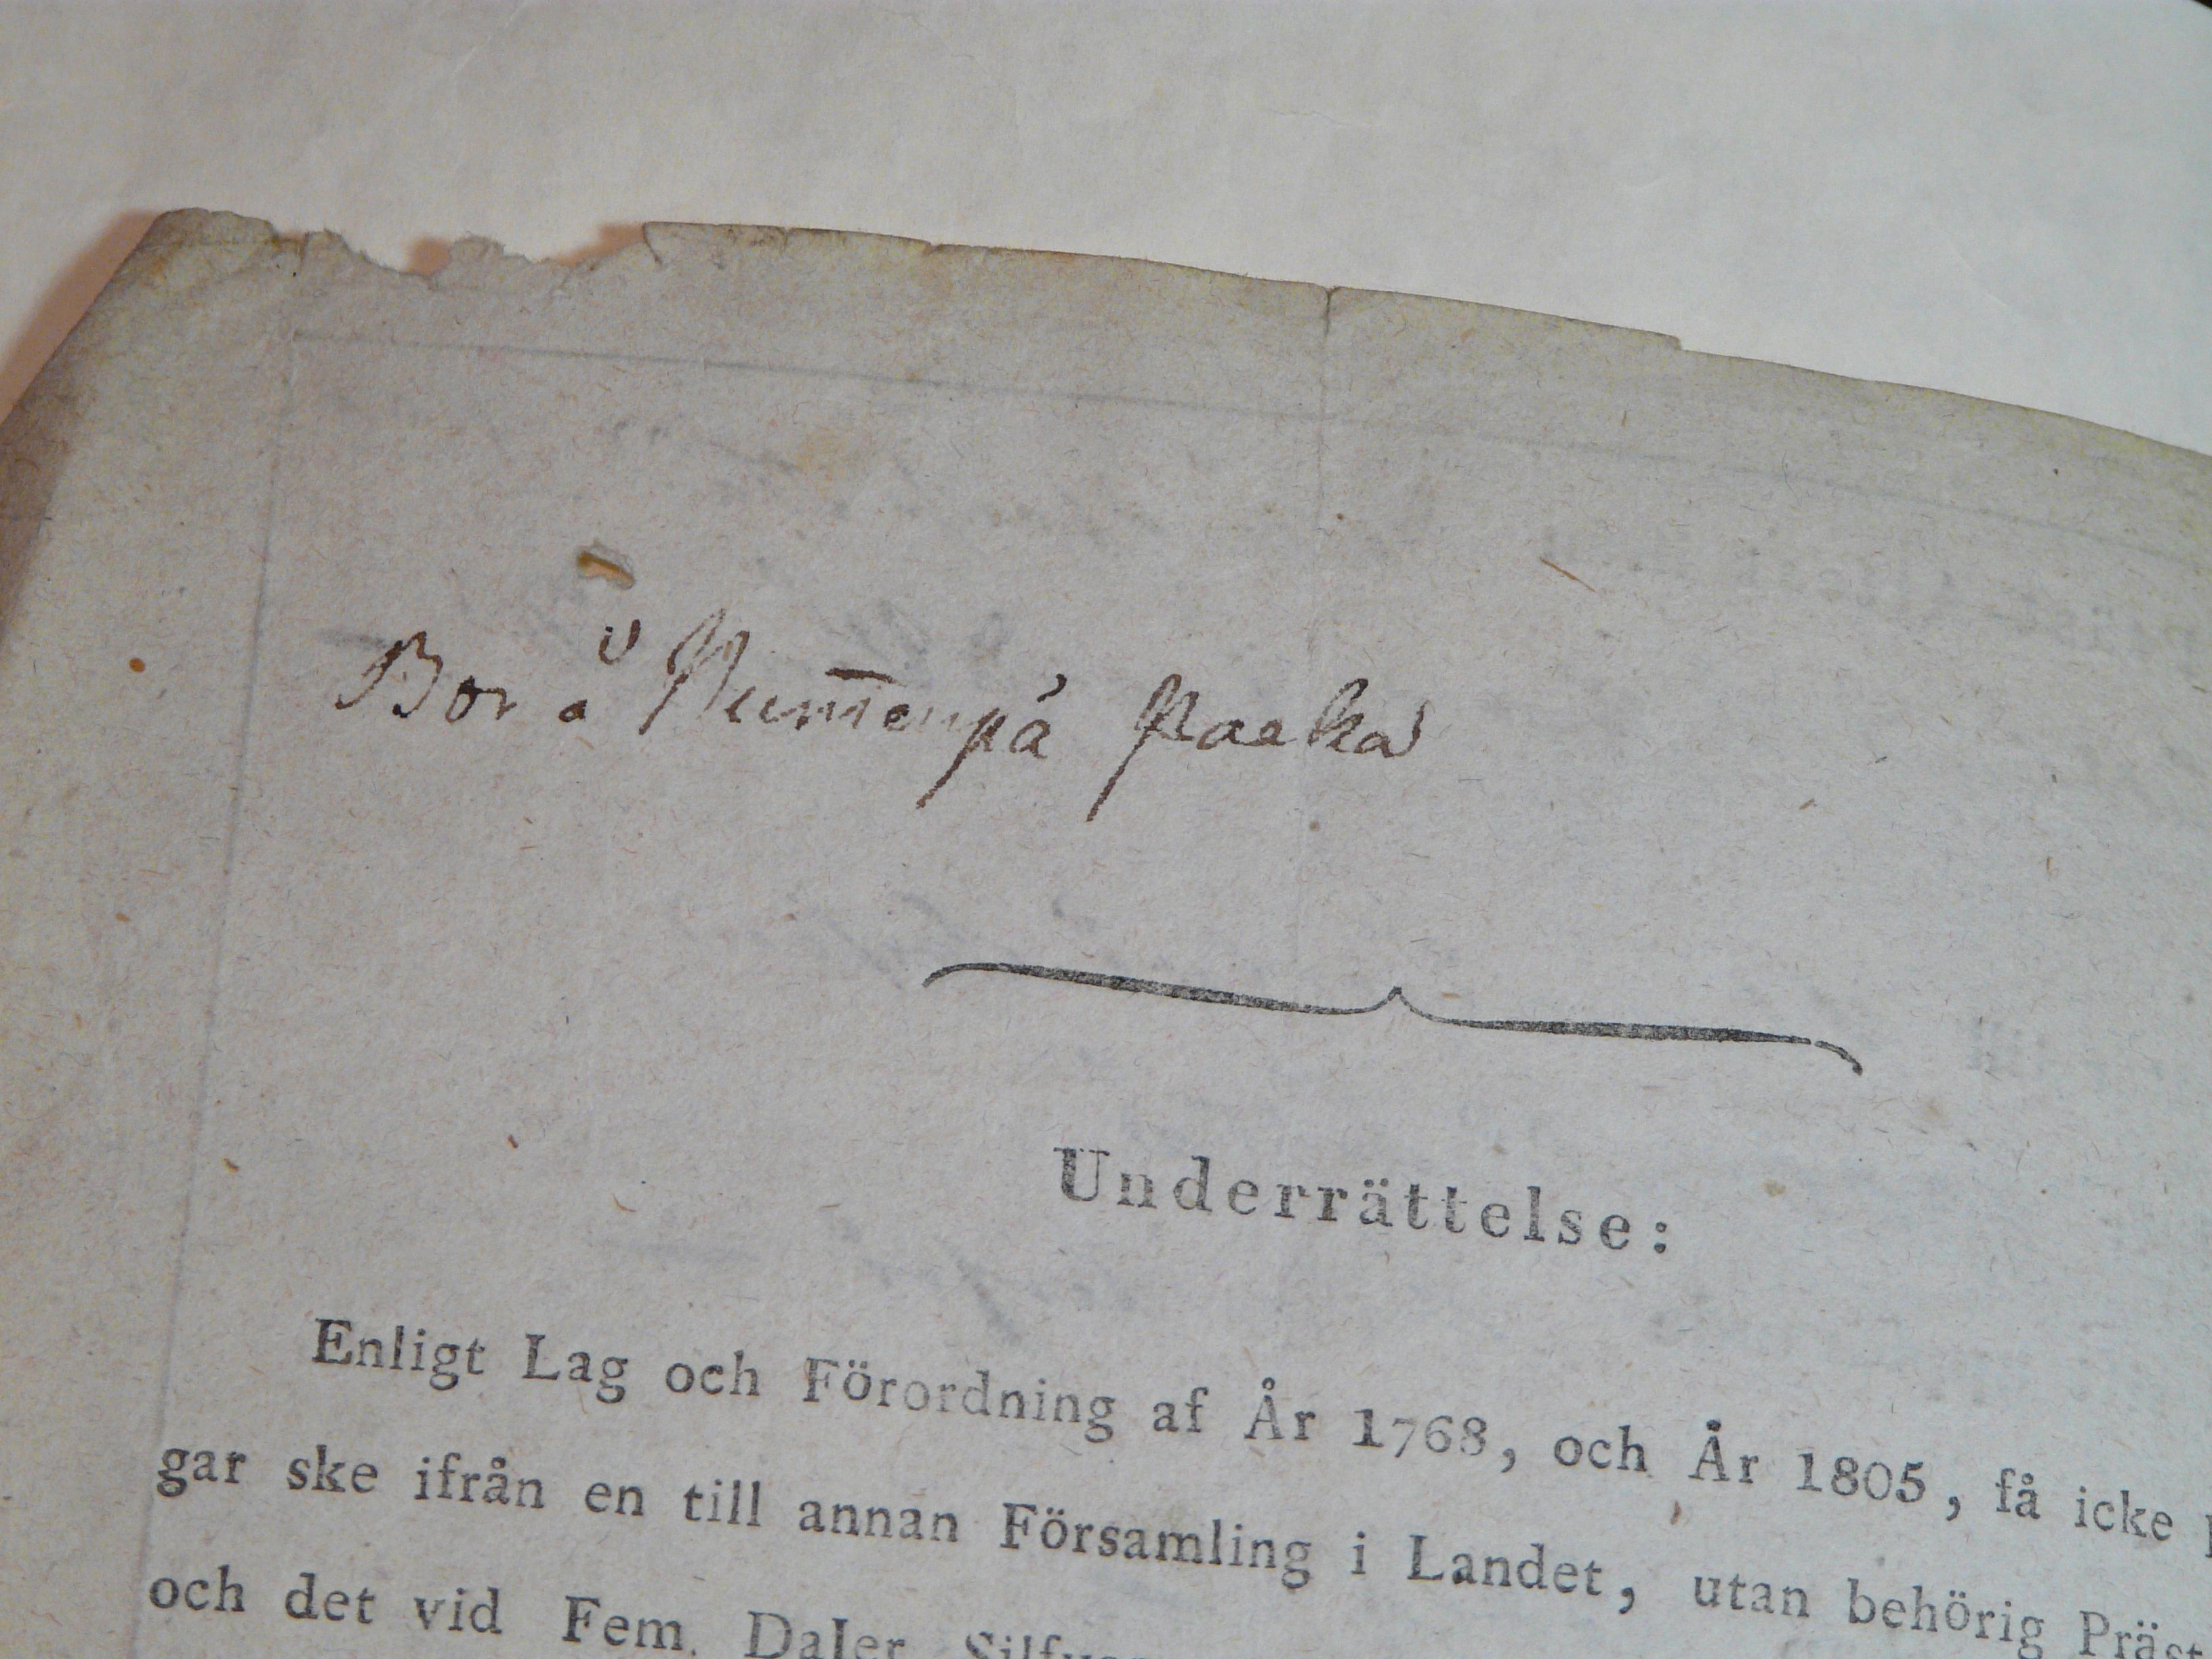 Bor å Num̅enpä Backa
Underrättelse:
Enligt Lag och Förordning af År 1768, och År 1805, få icke
gar ske ifrån en till annan Församling i Landet, utan behörig Präst
och det vid Fem Daler